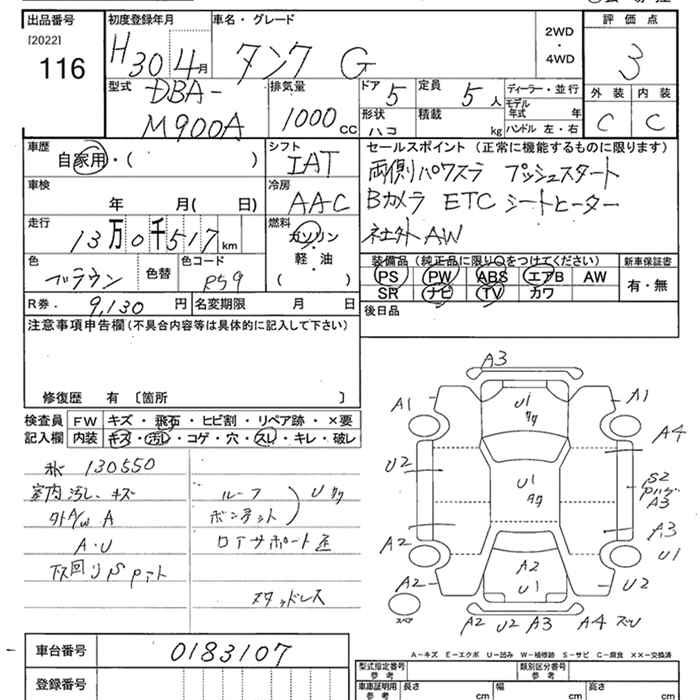 出品番号
[2022]
116
初度登録年月
H30 4月
車名・グレード
タンク G
2WD
・
4WD
評価点
3
型式
DBA-
M900A
排気量
1000 CC
ドア 5
定員 5 人
形状 ハコ
積載 kg
ディーラー・並行
モデル年式 年
ハンドル 左・右
外装 内装
C C
車歴
自家用・( )
シフト
IAT
車検
年 月( 日)
冷房
AAC
走行
13万0千517km
燃料
ガソリン
・
軽・油
( )
色
ブラウン
色替
色コード
R59
R券. 9,130 円
名変期限 月 日
セールスポイント(正常に機能するものに限ります)
両側パワスラ プッシュスタート
Bカメラ ETC シートヒーター
社外AW
装備品(純正品に限り○をつけてください)
新車保証書
PS PW ABS エアB AW
有・無
SR ナビ TV カワ
後日品
注意事項申告欄(不具合内容等は具体的に記入して下さい)
修復歴 有 〔箇所 〕
検査員
記入欄
FW キズ・飛石・ヒビ割・リペア跡・×要
内装 キズ・汚レ・コゲ・穴・スレ・キレ・破レ
130550
室内汚レ、キズ
外A/W A
A・U
下回りS
ルーフ
ボンネット
U タタ
ロアサポート
スタッドレス
A3
A1
U1
タタ
A1
A4
U2
U1
タタ
S2
A3
A3
U1
A2
A2
A2
U1
U2
スペア
A2 U2 A3 A4 ズレ
A-キズ E-エクボ U-凹み W-補修跡 S-サビ C-腐食 ××-交換済
車台番号
0183107
登録番号
型式指定番号
参考
類別区分番号
参考
車庫証明用
参考
長さ cm
幅 cm
高さ cm